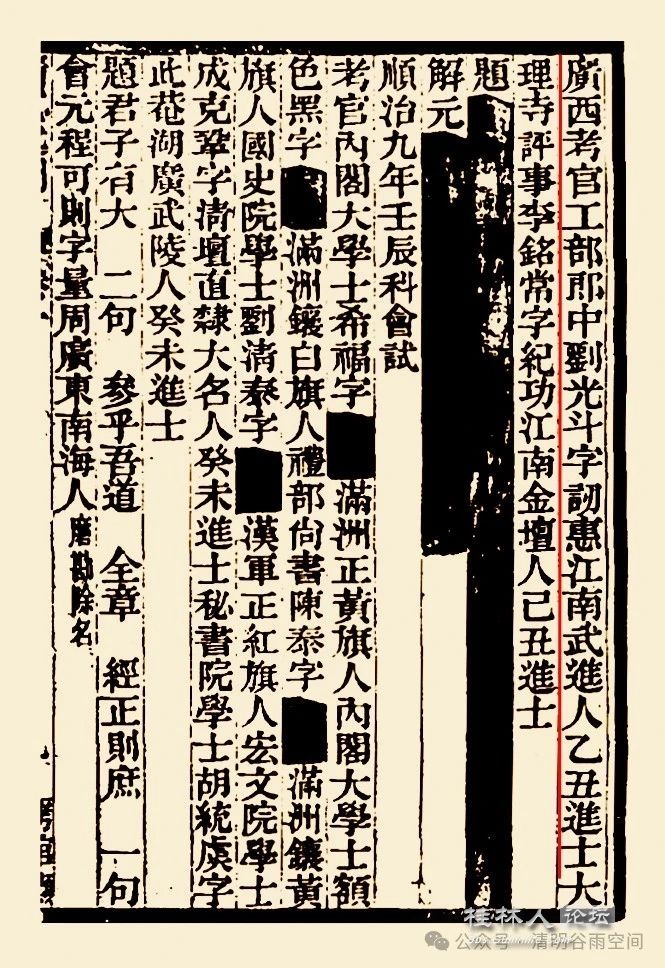 廣西考官工部郎中劉光斗字訒惠江南武進人乙丑進士大
理寺評事李銘常字紀功江南金壇人己丑進士
題
解元
順治九年壬辰科會試
考官內閣大學士希福字 滿洲正黃旗人內閣大學士額
色黑字 滿洲鑲白旗人禮部尚書陳泰字 滿洲鑲黃
旗人國史院學士劉清泰字 漢軍正紅旗人宏文院學士
成克鞏字清壇直隸大名人癸未進士秘書院學士胡統虞字
此菴湖廣武陵人癸未進士
題君子有大 二句 參乎吾道 全章 經正則庶 一句
會元程可則字量周廣東南海人磨勘除名
桂林人论坛
公众号 · 清明谷雨空间